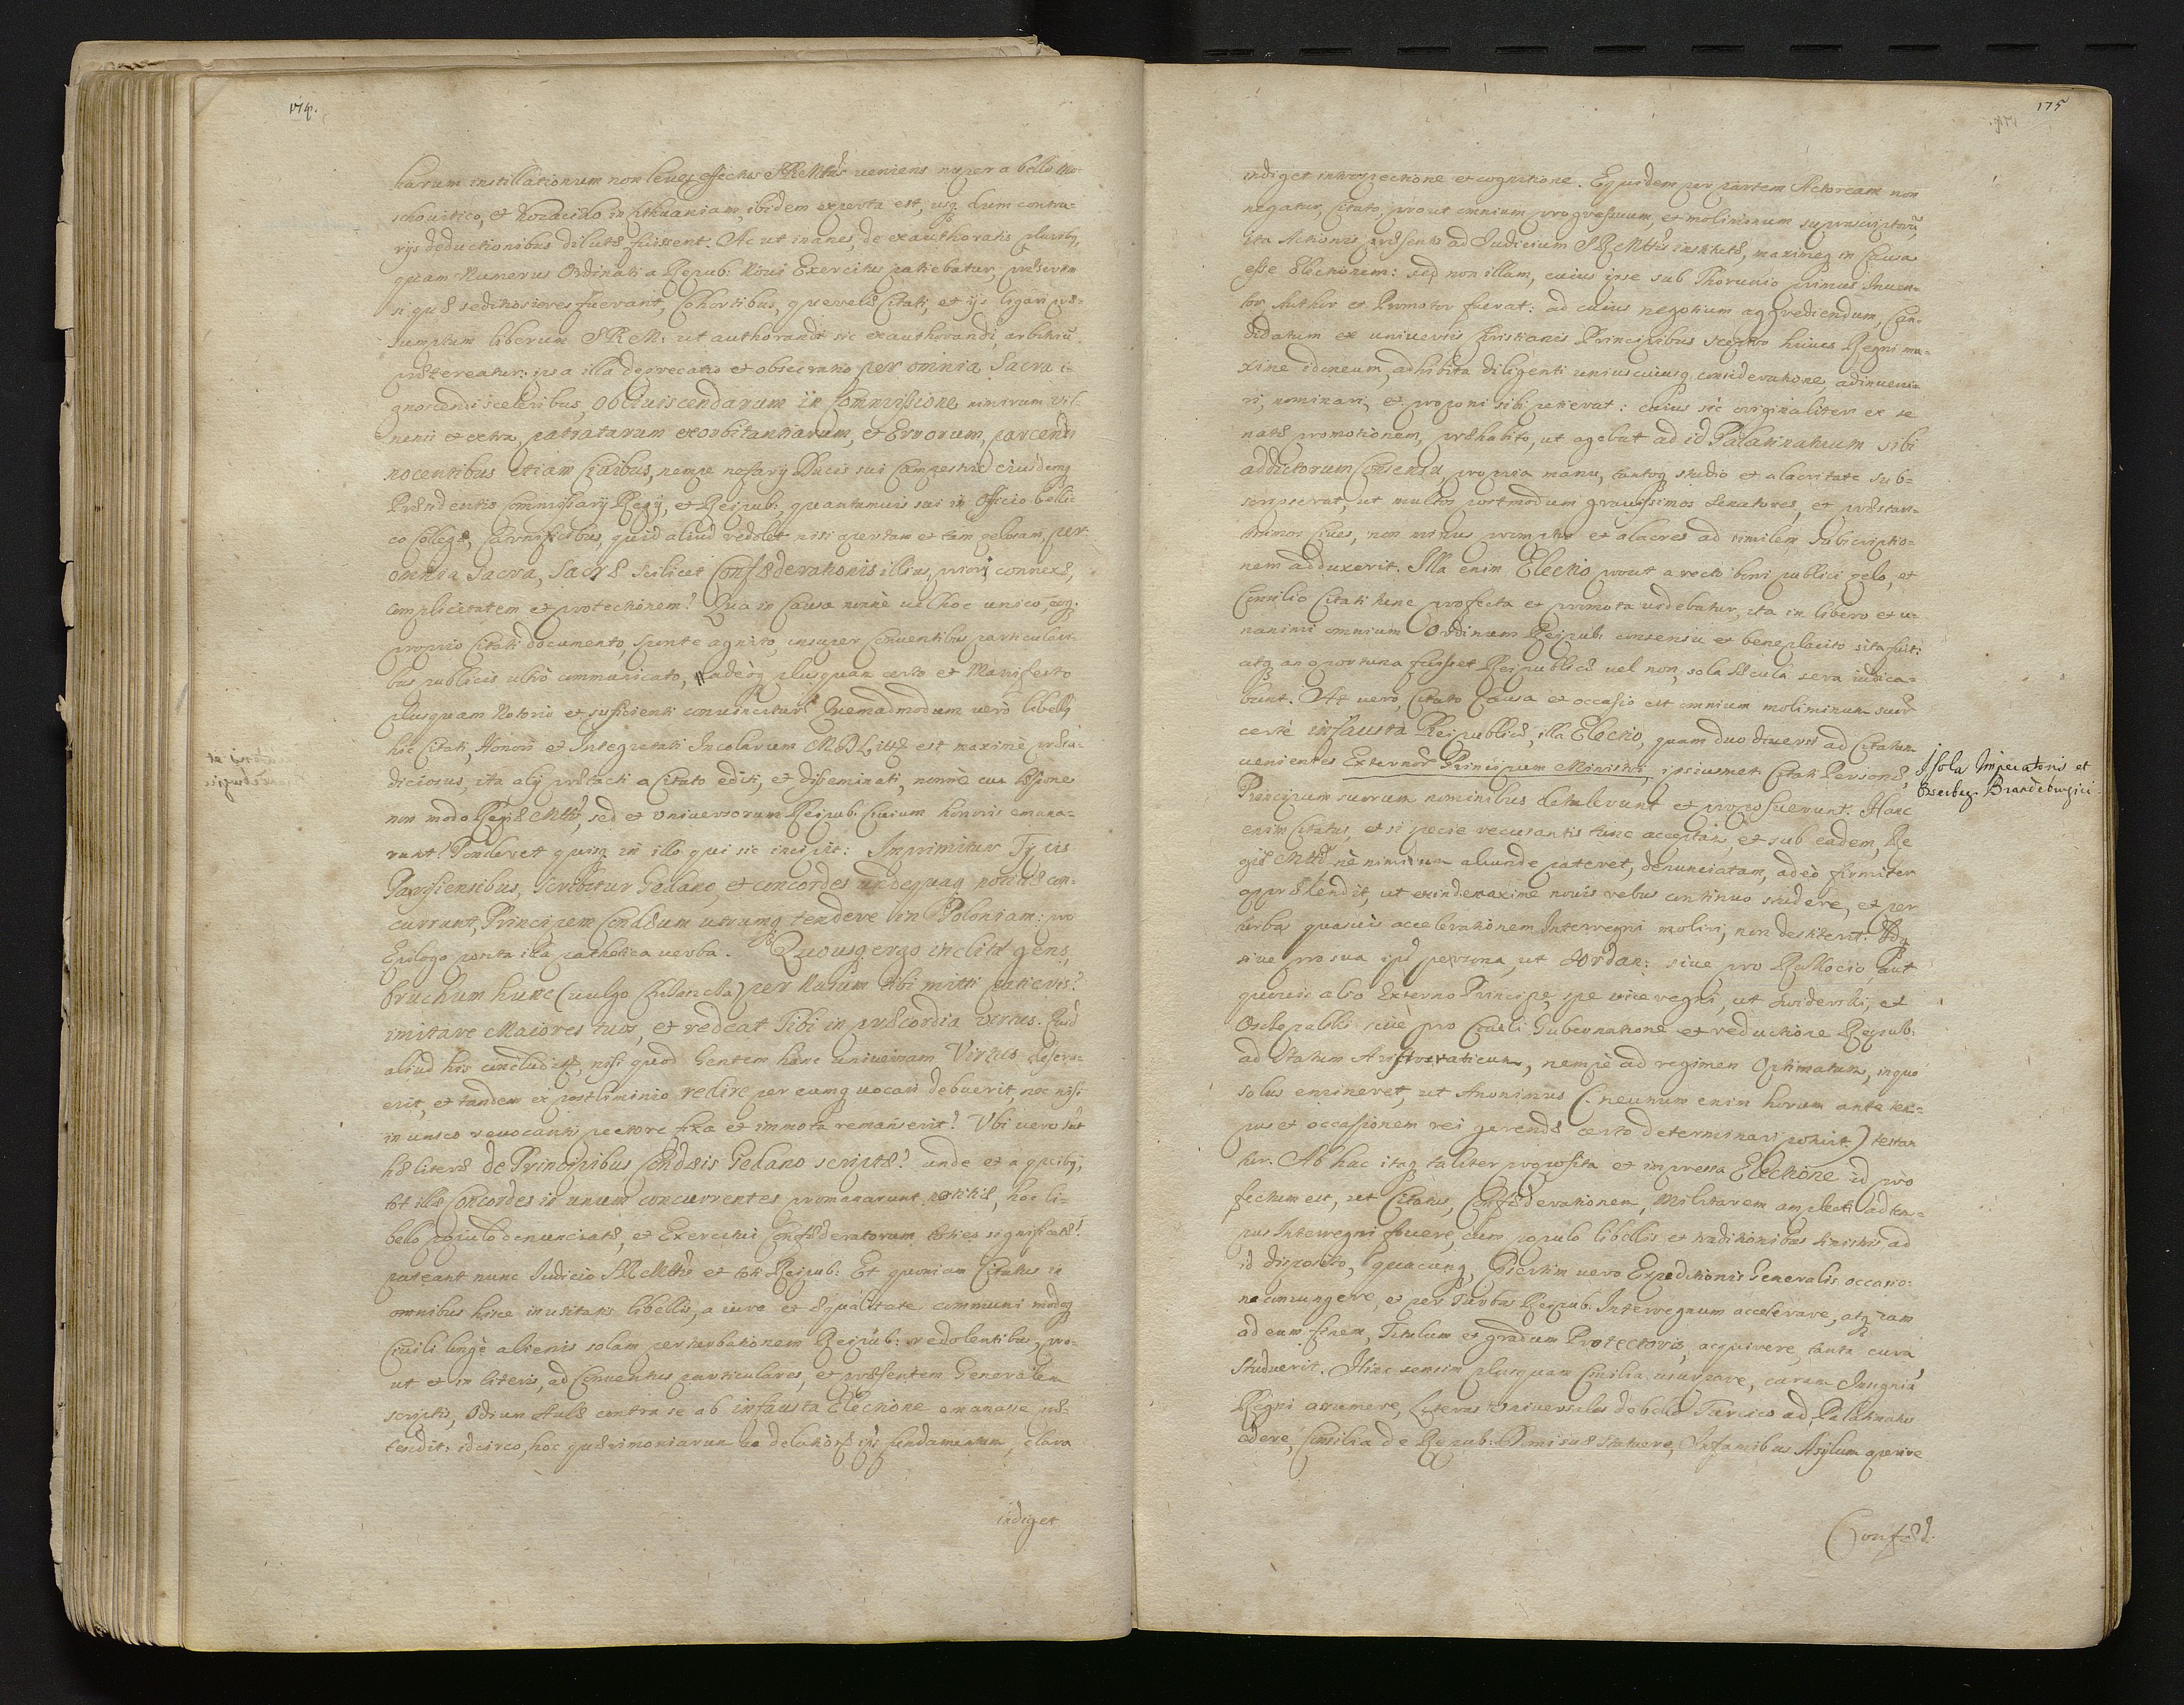 174.
harum instillationum non leues effectus SRMttis veniens nuper a bello Mo-
schouitico, et Kozacico in Lithuaniam, ibidem experta est, usq. dum contra-
rijs deductionibus dilutæ fuissent. Ac ut inanes, de exauthoratis pluriby,
quam Numerus Ordinati a Repub: Noui Exercitus patiebatur, præsertim
si quæ seditiosiores fuerant, Cohortibus, querelæ Citati, et ijs ligari præ-
sumptum liberum SRM: ut authorandi sic exauthorandi, arbitriũ
prætereatur: ipsa illa deprecatio et obsecratio per omnia Sacra i-
gnoscendi sceleribus, Obliuiscendarum in Commissione nimirum Vil-
nensi et extra, patratarum exorbitantiarum, et Errorum, parcendi
nocentibus etiam Ciuibus, nempe nefarij Ducis sui Campestris eiusdemq
Præsidentis Commissarij Regij, et Reipub:, quantumuis sui in Officio belli-
co Collegæ, Carnificibus, quid aliud redolet nisi apertam et tam zelosam, per
omnia Sacra, Sacræ scilicet Confæderationis illius, priori connexæ,
complicitatem et protectionem? Qua in Causa nonnè uel hoc unico, eoq.
proprio Citati documento, sponte agnito, insuper Conuentibus particulari-
bus publicis ultrò communicato, adeoq plusquam certo et Manifesto
plusquam Notorio et sufficienti conuincitur? Quemadmodum uerò libelly
hic Citati, Honori et Integritati Incolarum MDLittæ est maximè præiu-
diciosus, ita alij prætacti a Citato editi, et disseminati, nonnè cum læsione
non modo Regiæ Mttis, sed et Vniuersorum Reipub. Ciuium honoris emana-
runt? Ponderet quisq in illo qui sic incipit: Imprimitur Typis
Parisiensibus, Scribitur Gedano, et concordes undequaq notitiæ con-
currunt, Principem Condæum utrumq tendere in Poloniam: pro
Epilogo posita ista pathetica uerba. Quousq. ergo inclita gens,
bruchum hunc (uulgo Chrabszcza) per Nasum tibi mitti patieris?
imitare Maiores tuos, et redeat Tibi in præcordia virtus. Quid
aliud his concluditur, nisi quod Gentem hanc uniuersam Virtus deserue-
rit, et tandem ex postliminio redire per eumq uocari debuerit, nec nisi
in unico reuocantis pectore fixa et immota remanserit? Vbi uero sunt
hæ literæ de Principibus Condæis Gedano scriptæ? unde et a quiby,
tot illæ Concordes in unum concurrentes promanarunt notitiæ, hoc li-
bello populo denunciatæ, et Exercitui Confæderatorum toties significatæ?
pateant nunc Iudicio SRMttis et toti Reipub: Et quoniam Citatus in
omnibus hisce inusitatis libellis, a iure et æqualitate communi modoq
Ciuili longè alienis solam perturbationem Reipub: redolentibus, pro-
ut et in literis, ad Conuentus particulares, et præsentem Generalem
scriptis, Odium Aulæ contra se ab infausta Electione emanasse præ-
tendit: idcirco, hoc quærimoniarum ac delationis ipsius fundamentum, clara
indiget
175
indiget introspectione et cognitione. Equidem per partem Actoream non
negatur, Citato, prout omnium progressuum, et moliminum suprascriptorũ,
ita Actionis præsentis ad Iudicium SRMttis institutæ, maximeq in Causa
esse Electionem: sed non illam, cuius ipse sub Thorunio primus Inuen-
tor, Author et Promotor fuerat: ad cuius negotium aggrediendum, Can-
didatum ex uniuersis Christianis Principibus sceptro huius Regni ma-
xime idoneum, adhibita diligenti uniuscuiusq consideratione, adinueni-
ri, nominari, et proponi sibi petierat: cuius sic originaliter ex se
natæ promotionem, præhabito, ut agebat ad id Palatinatuum sibi
addictorum Consensu, propria manu, tantoq studio et alacritate sub-
scripserat, ut multos postmodum grauissimos Senatores, et præstan-
tissimos Ciues, non minus promptos et alacres ad similem Subscriptio-
nem adduxerit. Illa enim Electio prout a recto boni publici zelo, et
Consilio Citati tunc profecta et promota uidebatur, ita in libero et u-
nanimi omnium Ordinum Reipub. consensu et beneplacito sita fuit:
atq an oportuna fuisset Reipublicæ uel non, sola sæcula sera iudica-
bunt. At uerò, Citato Causa et occasio est omnium moliminum suorũ
certè infausta Reipublicæ, illa Electio, quam duo diuersi ad Citatum
uenientes Externorũ Principum Ministri, ipsiusmet Citati Personæ,
Principum suorum nominibus detulerunt et proposuerunt. Hanc
enim Citatus, etsi specie recusantis tunc acceptam, et sub eadem, Re-
giæ Mtti nè nimirum aliunde pateret, denunciatam, adeò firmiter
apprehendit, ut exinde maxime nouis rebus continuo studere, et per
turbas quasuis accelerationem Interregni moliri, non destiterit. Idq
siue pro sua ipsius persona, ut Jordan: siue pro Rakocio, aut
quouis alio Externo Principe, spe uiceregni, ut Swiderski, et
Ostrepalski siuè pro Citati Gubernatione et reductione Reipub:
ad Statum Aristocraticum, nempè ad regimen Optimatum, in quo
solus emineret, ut Anonimus (neunum enim horum ante tem-
pus et occasionem rei gerendæ certo determinari potuit) testan-
tur. Ab hac itaq taliter proposita et impressa Electione id pro-
fectum est, ut Citatus, Confæderationem, Militarem amplecti ad tem-
pus Interregni fouere, cum populo libellis et traditionibus sinistris ad
id disposito, quacunq, Præsertim uero Expeditionis Generalis occasio-
ne coniungere, et per Turbas Reipub. Interregnum accelerare, atq iam
ad eum finem, Titulum et gradum Protectoris, acquirere, tanta cura
studuerit. Hinc sensim plusquam Consilia usurpare, curam Insignia
Regni assumere, Literas Vniuersales de bello Turcico ad Palatinatus
edere, Consilia de Repub: Domi suæ statuere, Infamibus Asylum aperire
Isola Imperatoris et
Brandeburgici
Confæd.